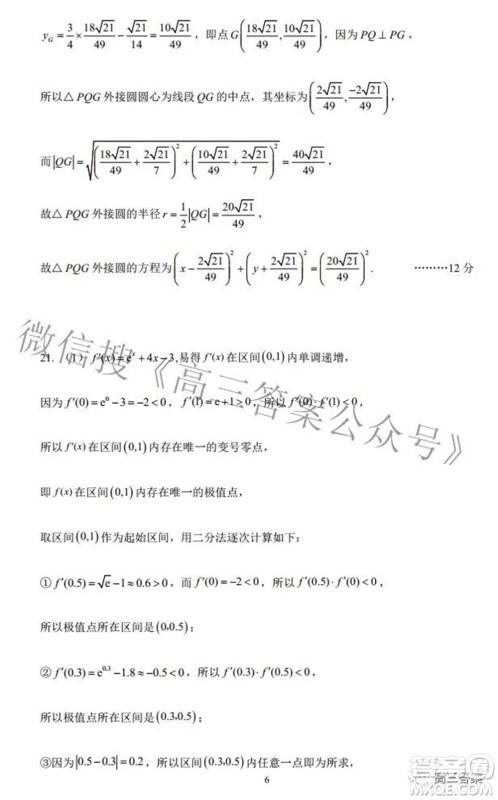 y_G = 3/4 × 18√21/49 − √21/14 = 10√21/49，即点 G(18√21/49, 10√21/49)，因为 PQ ⊥ PG，
所以△PQG 外接圆圆心为线段 QG 的中点，其坐标为 (2√21/49, −2√21/49)，
而|QG| = √((18√21/49 + 2√21/7)² + (10√21/49 + 2√21/7)²) = 40√21/49，
故△PQG 外接圆的半径 r = 1/2|QG| = 20√21/49，
故△PQG 外接圆的方程为 (x − 2√21/49)² + (y + 2√21/49)² = (20√21/49)². ………12 分
21.（1）f′(x) = eˣ + 4x − 3,易得 f′(x) 在区间(0,1)内单调递增，
因为 f′(0) = e⁰ − 3 = −2 < 0，f′(1) = e + 1 > 0，所以 f′(0)·f′(1) < 0，
所以 f′(x) 在区间(0,1)内存在唯一的变号零点，
即 f(x) 在区间(0,1)内存在唯一的极值点，
取区间(0,1)作为起始区间，用二分法逐次计算如下：
① f′(0.5) = √e − 1 ≈ 0.6 > 0，而 f′(0) = −2 < 0，所以 f′(0.5)·f′(0) < 0，
所以极值点所在区间是(0,0.5)；
② f′(0.3) = e^0.3 − 1.8 ≈ −0.5 < 0，所以 f′(0.3)·f′(0.5) < 0，
所以极值点所在区间是(0.3,0.5)；
③因为|0.5 − 0.3| = 0.2，所以区间(0.3,0.5)内任意一点即为所求，
6
微信搜《高三答案公众号》
高三答案
答案圈
MXQE.COM